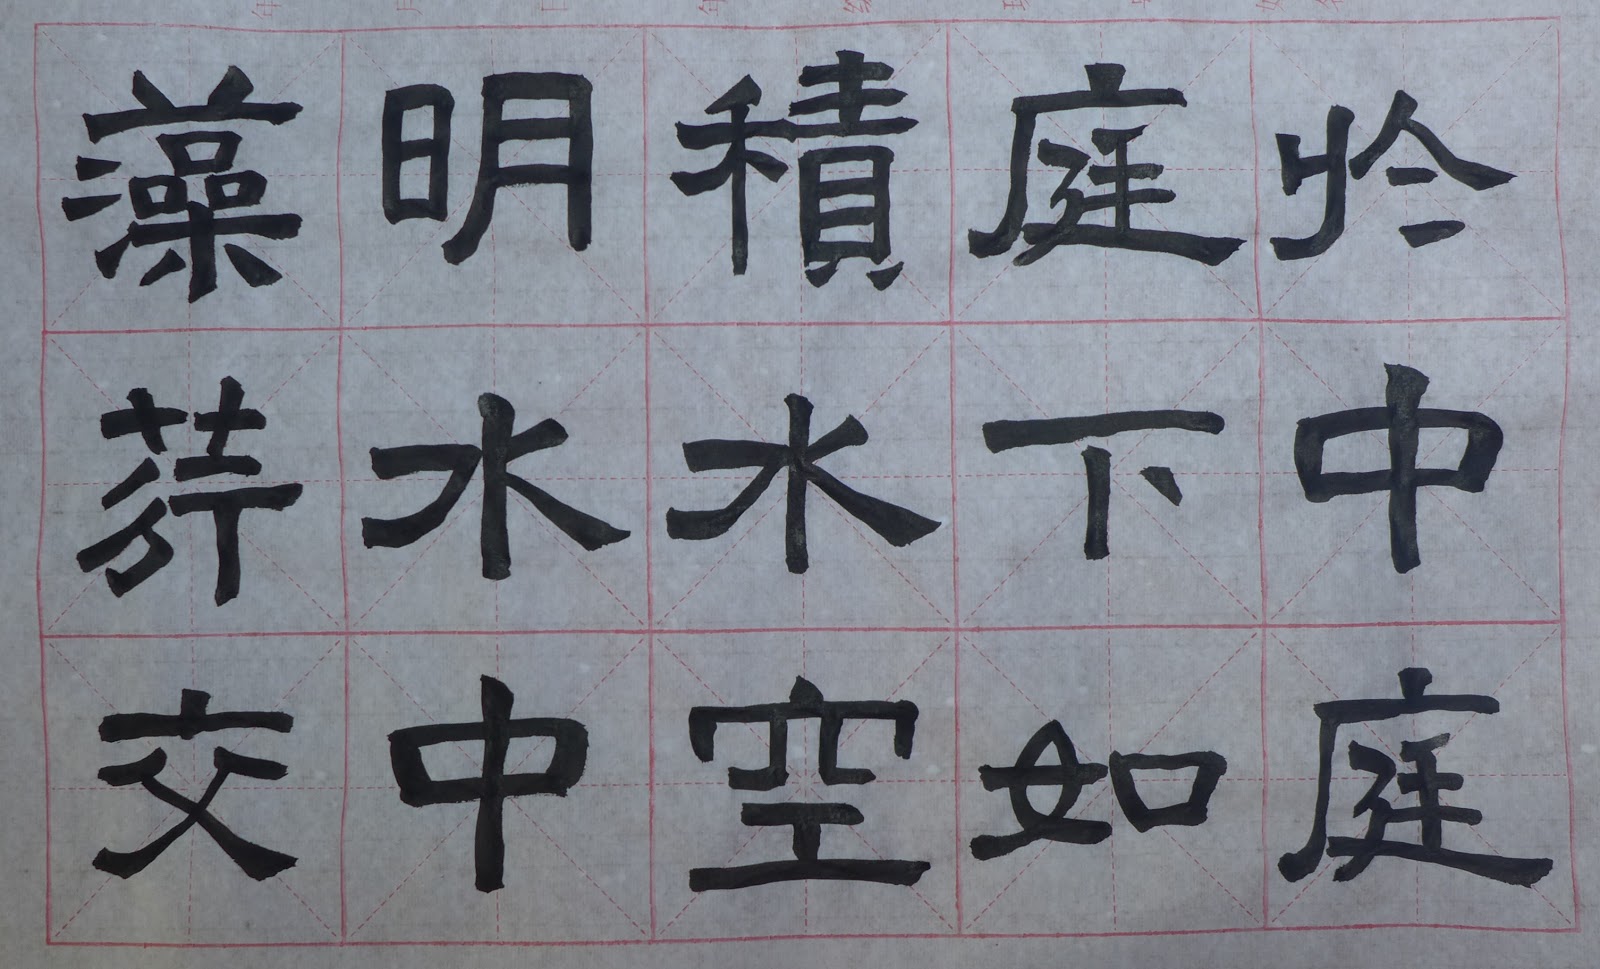 於中庭
庭下如
積水空
明水中
藻荇交